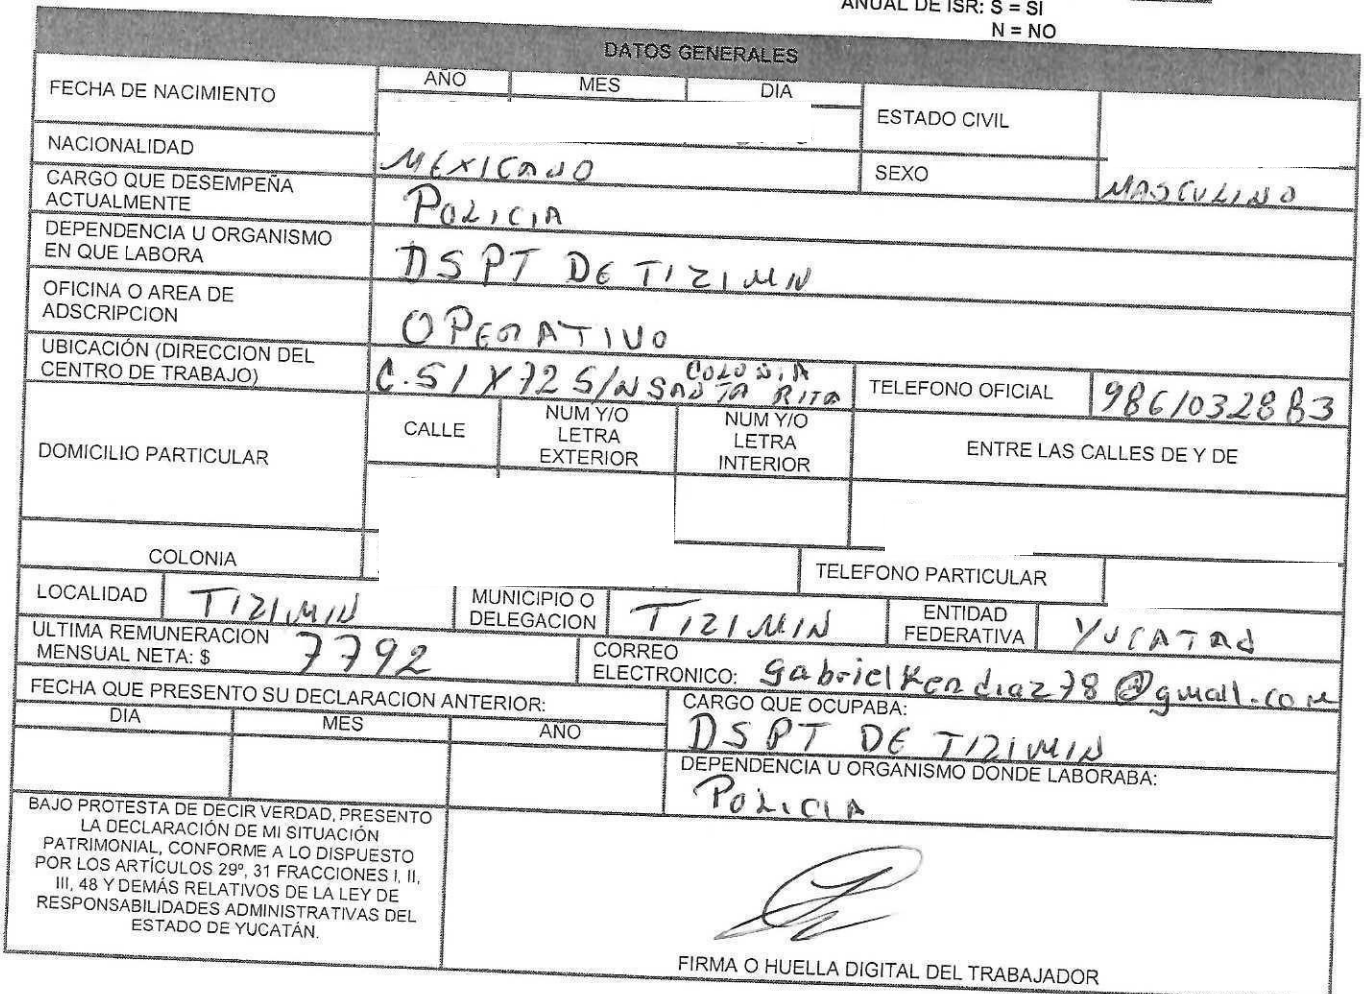 ANUAL DE ISR: S = SI
N = NO
DATOS GENERALES
FECHA DE NACIMIENTO
AÑO MES DIA
ESTADO CIVIL
NACIONALIDAD
MEXICANO
SEXO
MASCULINO
CARGO QUE DESEMPEÑA
ACTUALMENTE
POLICIA
DEPENDENCIA U ORGANISMO
EN QUE LABORA
DSPT DE TIZIMIN
OFICINA O AREA DE
ADSCRIPCION
OPERATIVO
UBICACIÓN (DIRECCION DEL
CENTRO DE TRABAJO)
C. 51 X 72 S/N COLONIA
SANTA RITA
TELEFONO OFICIAL
9861032883
DOMICILIO PARTICULAR
CALLE
NUM Y/O
LETRA
EXTERIOR
NUM Y/O
LETRA
INTERIOR
ENTRE LAS CALLES DE Y DE
COLONIA
TELEFONO PARTICULAR
LOCALIDAD
TIZIMIN
MUNICIPIO O
DELEGACION
TIZIMIN
ENTIDAD
FEDERATIVA
YUCATAN
ULTIMA REMUNERACION
MENSUAL NETA: $
7792
CORREO
ELECTRONICO:
gabrielkendiaz78@gmail.com
FECHA QUE PRESENTO SU DECLARACION ANTERIOR:
DIA MES AÑO
CARGO QUE OCUPABA:
DSPT DE TIZIMIN
DEPENDENCIA U ORGANISMO DONDE LABORABA:
POLICIA
BAJO PROTESTA DE DECIR VERDAD, PRESENTO
LA DECLARACIÓN DE MI SITUACIÓN
PATRIMONIAL, CONFORME A LO DISPUESTO
POR LOS ARTÍCULOS 29º, 31 FRACCIONES I, II,
III, 48 Y DEMÁS RELATIVOS DE LA LEY DE
RESPONSABILIDADES ADMINISTRATIVAS DEL
ESTADO DE YUCATÁN.
FIRMA O HUELLA DIGITAL DEL TRABAJADOR